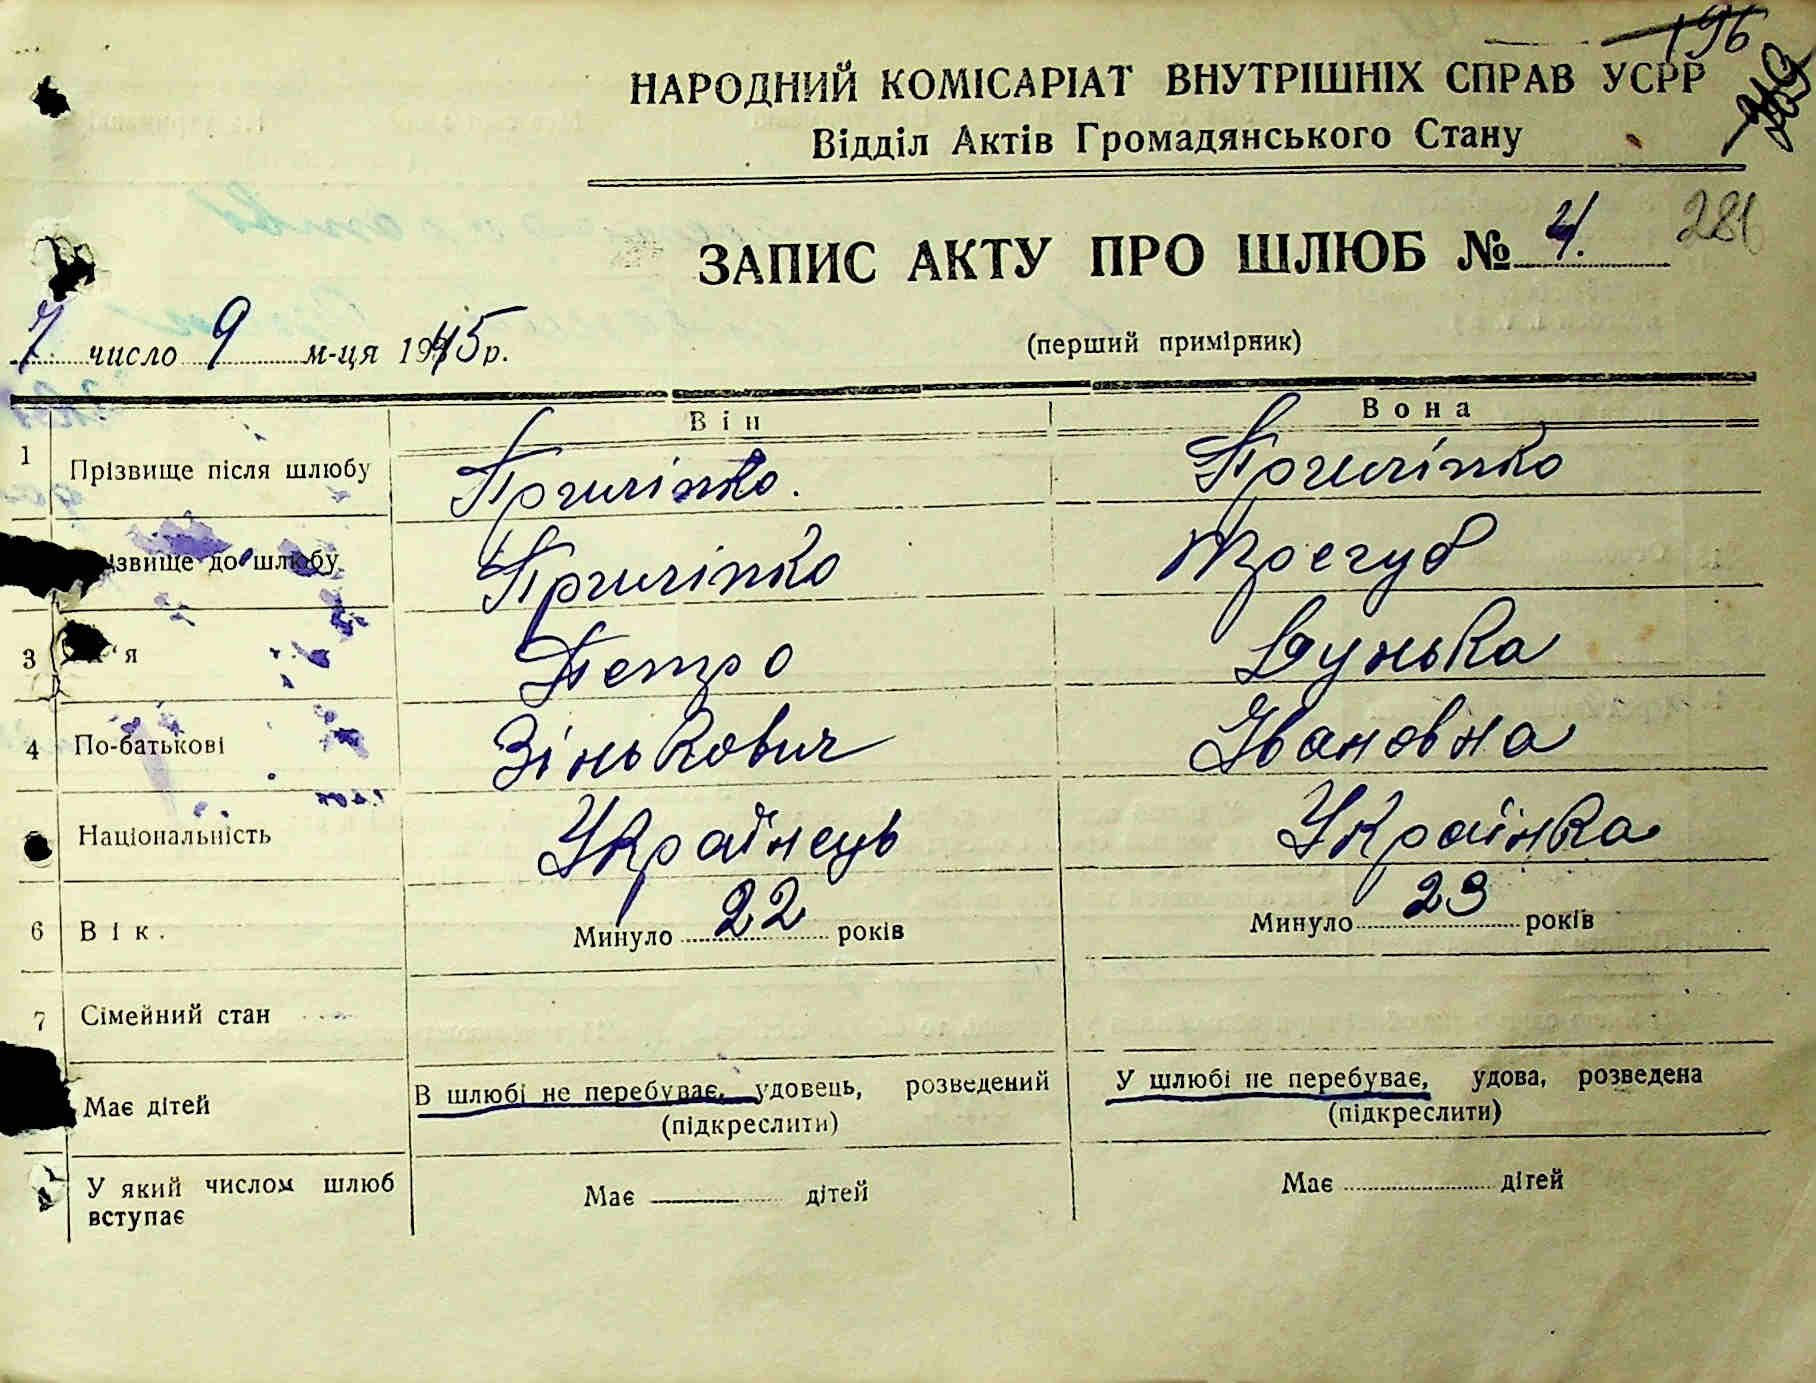 196
НАРОДНИЙ КОМІСАРІАТ ВНУТРІШНІХ СПРАВ УСРР
Відділ Актів Громадянського Стану
ЗАПИС АКТУ ПРО ШЛЮБ № 4. 286
7 число 9 м-ця 1945 р. (перший примірник)
Він Вона
1 Прізвище після шлюбу Причіпко. Причіпко
ізвище до шлюбу Причіпко Трегуб
3 'я Петро Дунька
4 По-батькові Зінькович Івановна
Національність Українець Українка
6 Вік. Минуло 22 років Минуло 23 років
7 Сімейний стан
Має дітей В шлюбі не перебуває, удовець, розведений У шлюбі не перебуває, удова, розведена
(підкреслити) (підкреслити)
У який числом шлюб вступає Має дітей Має дітей